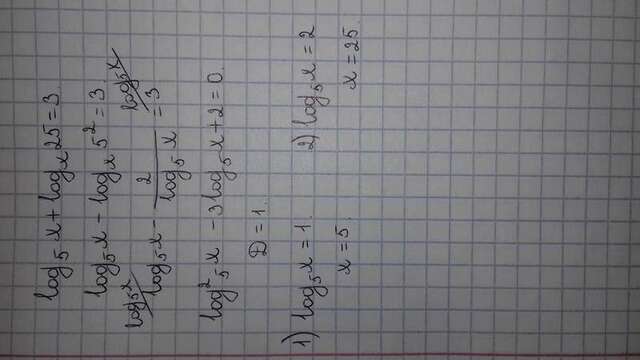 log₅x + logₓ25 = 3.
log₅x − logₓ5² = 3.
log₅x / log₅x − 2/log₅x = 3 / log₅x
log²₅x − 3log₅x + 2 = 0.
D = 1.
1) log₅x = 1. 2) log₅x = 2
x = 5. x = 25.